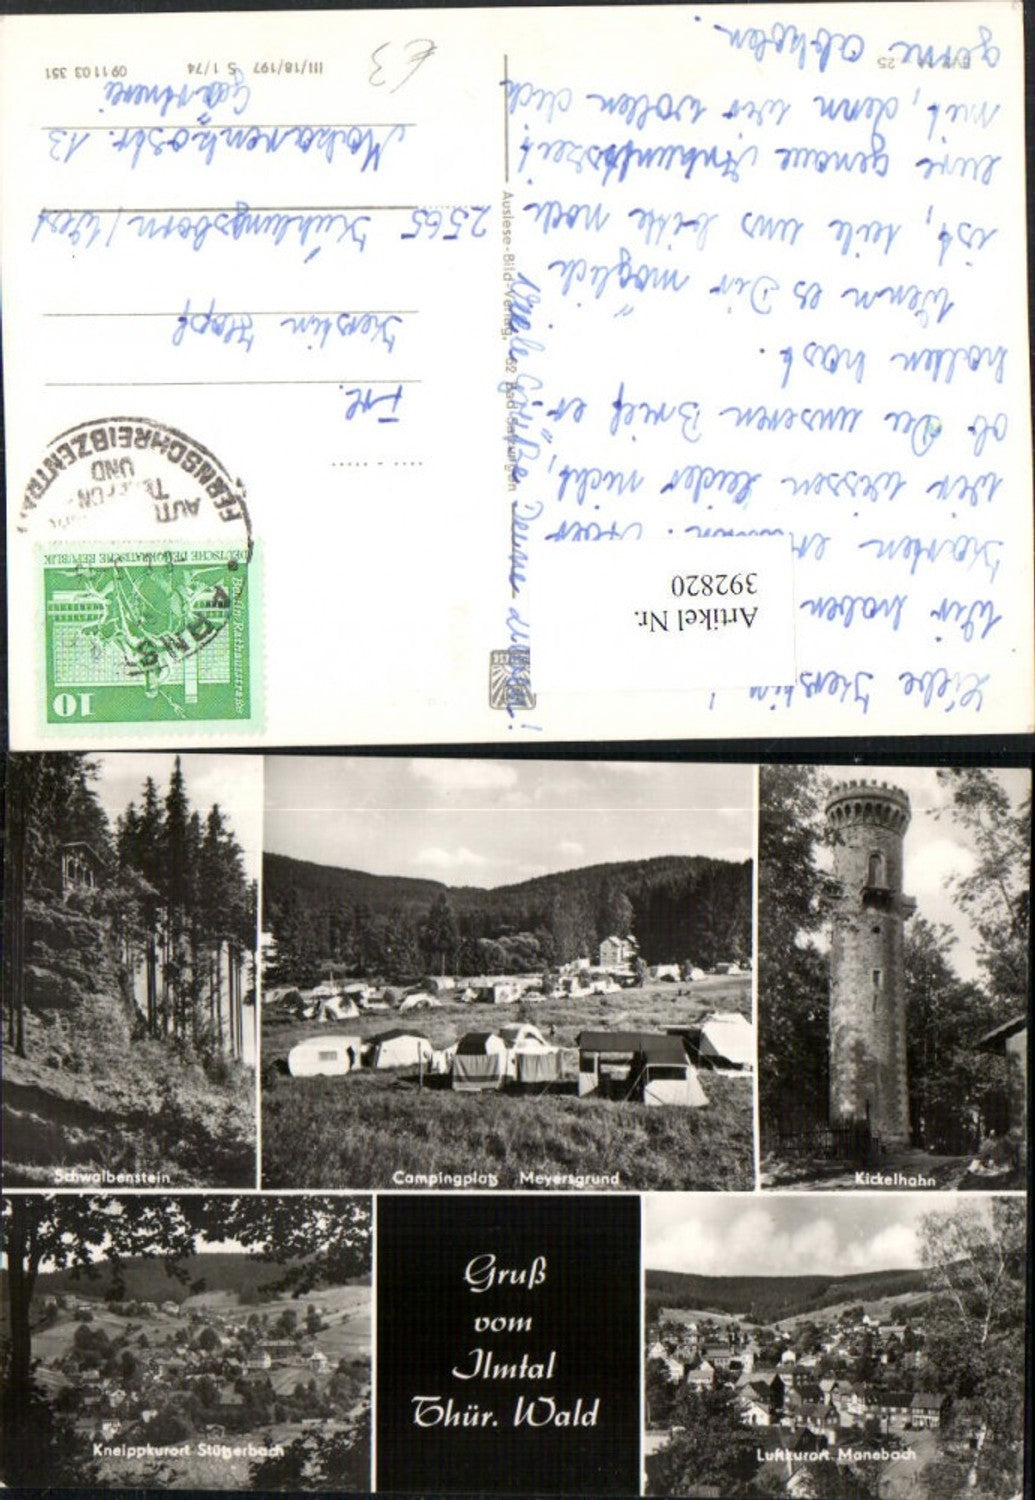 Liebe Kerstin!
Wir haben
Karten er
wir wissen leider nicht,
ob Du unseren Brief er-
halten hast.
Wenn es Dir möglich
ist, teile uns bitte noch
eure genaue Ankunftszeit
mit, denn wir wollen dich
gerne abholen.
Viele Grüße Deine
Artikel Nr.
392820
Auslese-Bild-Verlag, 62 Bad Salzungen
10
Berlin, Rathausstraße
DEUTSCHE DEMOKRATISCHE REPUBLIK
FERNSCHREIBZENTRA
UND
Frl.
Kerstin Hopf
2565 Kühlungsborn/West
13
Gärtnerei
III/18/197 S 1/74 09 11 03 351
€3
Schwalbenstein
Campingplatz Meyersgrund
Kickelhahn
Gruß
vom
Ilmtal
Thür. Wald
Kneippkurort Stützerbach
Luftkurort Manebach